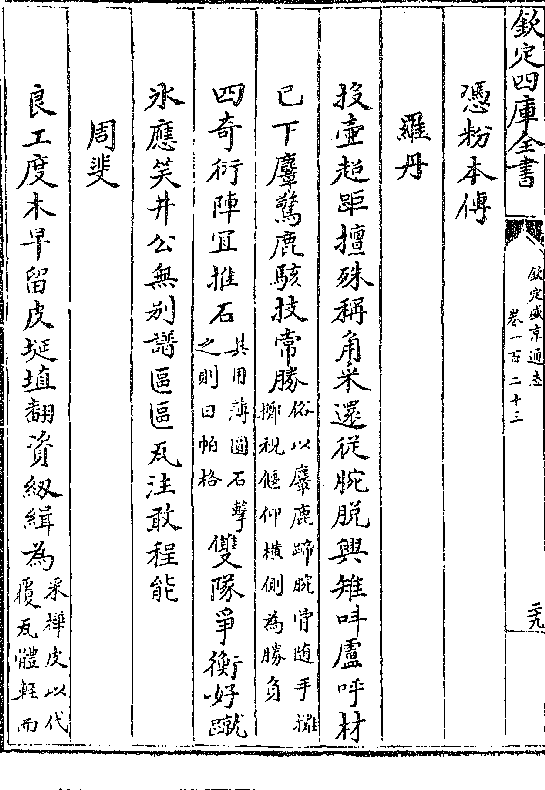 欽定四庫全書
欽定盛京通志
卷一百二十三
二十九
憑粉本傳
羅丹
投壺超距擅殊稱角采還從腕脱興雉呌盧呼材
已下麞驚鹿駭技常勝俗以麋鹿蹄腕骨随手摊
擲視偃仰橫側為勝負
四奇衍陣宜推石其用薄圓石擊
之則曰帕格雙隊爭衡好蹴
氷應笑井公無别譜區區瓦注敢程能
周斐
良工度木早留皮埏埴翻資紉緝為采樺皮以代
覆瓦體輕而